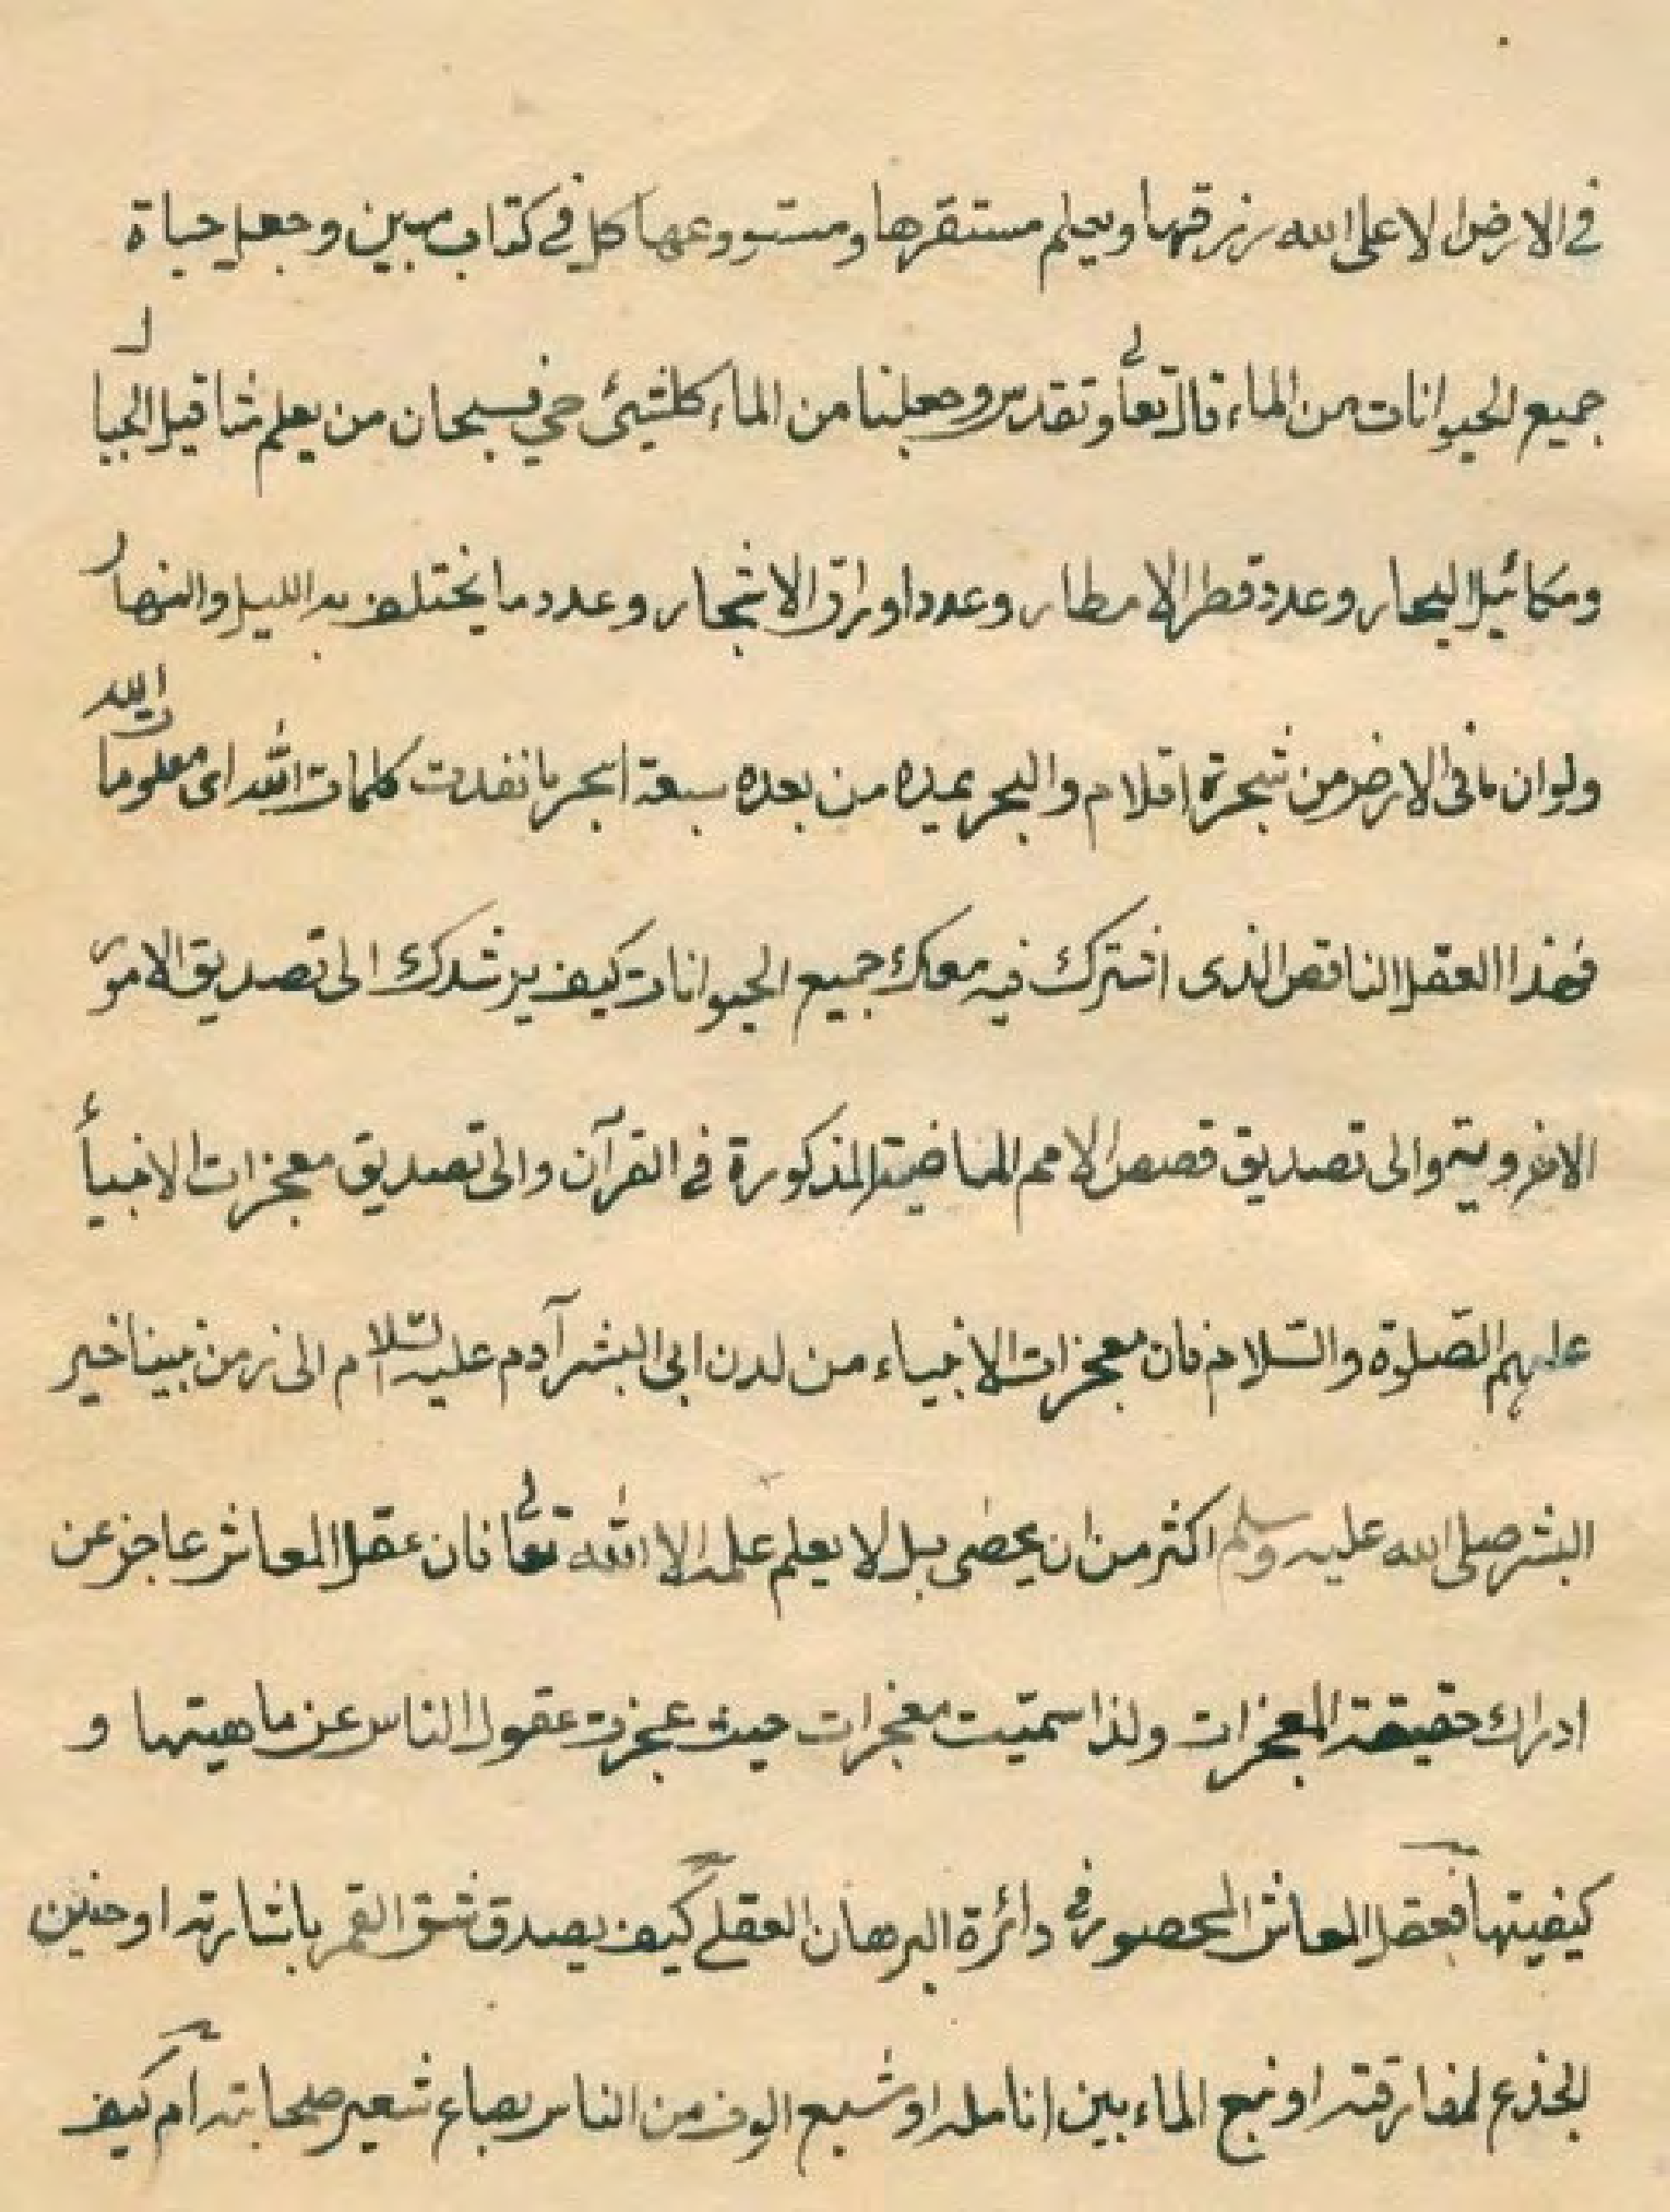 في الارض الا على الله رزقها ويعلم مستقرها ومستودعها كل في كتاب مبين وجعل حياة
جميع الحيوانات من الماء قال تعالى وتقدس وجعلنا من الماء كلشيئ حي فسبحان من يعلم مثاقيل الجبال
ومكائيل البحار وعدد قطر الامطار وعدد اوراق الاشجار وعدد ما يختلف به الليل والنهار
ولو ان ما في الارض من شجرة اقلام والبحر يمده من بعده سبعة ابحر ما نفدت كلمات الله اى معلومات الله
فهذا العقل الناقص الذى اشترك فيه معك جميع الحيوانات كيف يرشدك الى تصديق الامور
الاخروية والى تصديق قصص الامم الماضية المذكورة في القرآن والى تصديق معجزات الانبياء
عليهم الصلوة والسلام فان معجزات الانبياء من لدن ابى البشر آدم عليه السلام الى زمن نبينا خير
البشر صلى الله عليه وسلم اكثر من ان يحصى بل لا يعلم علمه الا الله تعالى فان عقل المعاش عاجز عن
ادراك حقيقة المعجزات ولذا سميت معجزات حيث عجزت عقول الناس عن ماهيتها و
كيفيتها فعقل المعاش المحصور في دائرة البرهان العقلي كيف يصدق شق القمر باشارته او حنين
الجذع لمفارقته او نبع الماء بين انامله او شبع الوف من الناس بصاع شعير صحابته ام كيف